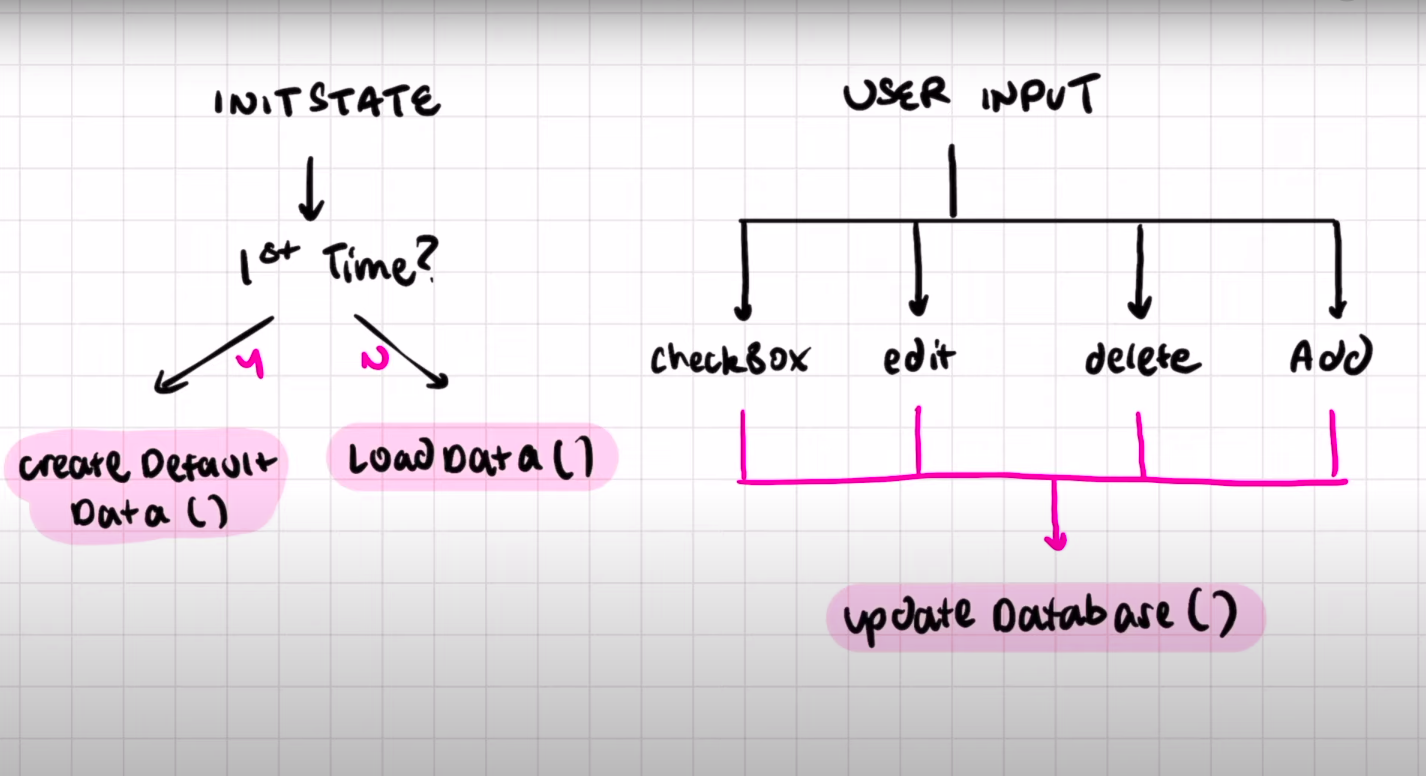 INITSTATE
1st Time?
Y N
create Default
Data ()
Load Data ()
USER INPUT
checkBox edit delete Add
update Database ()